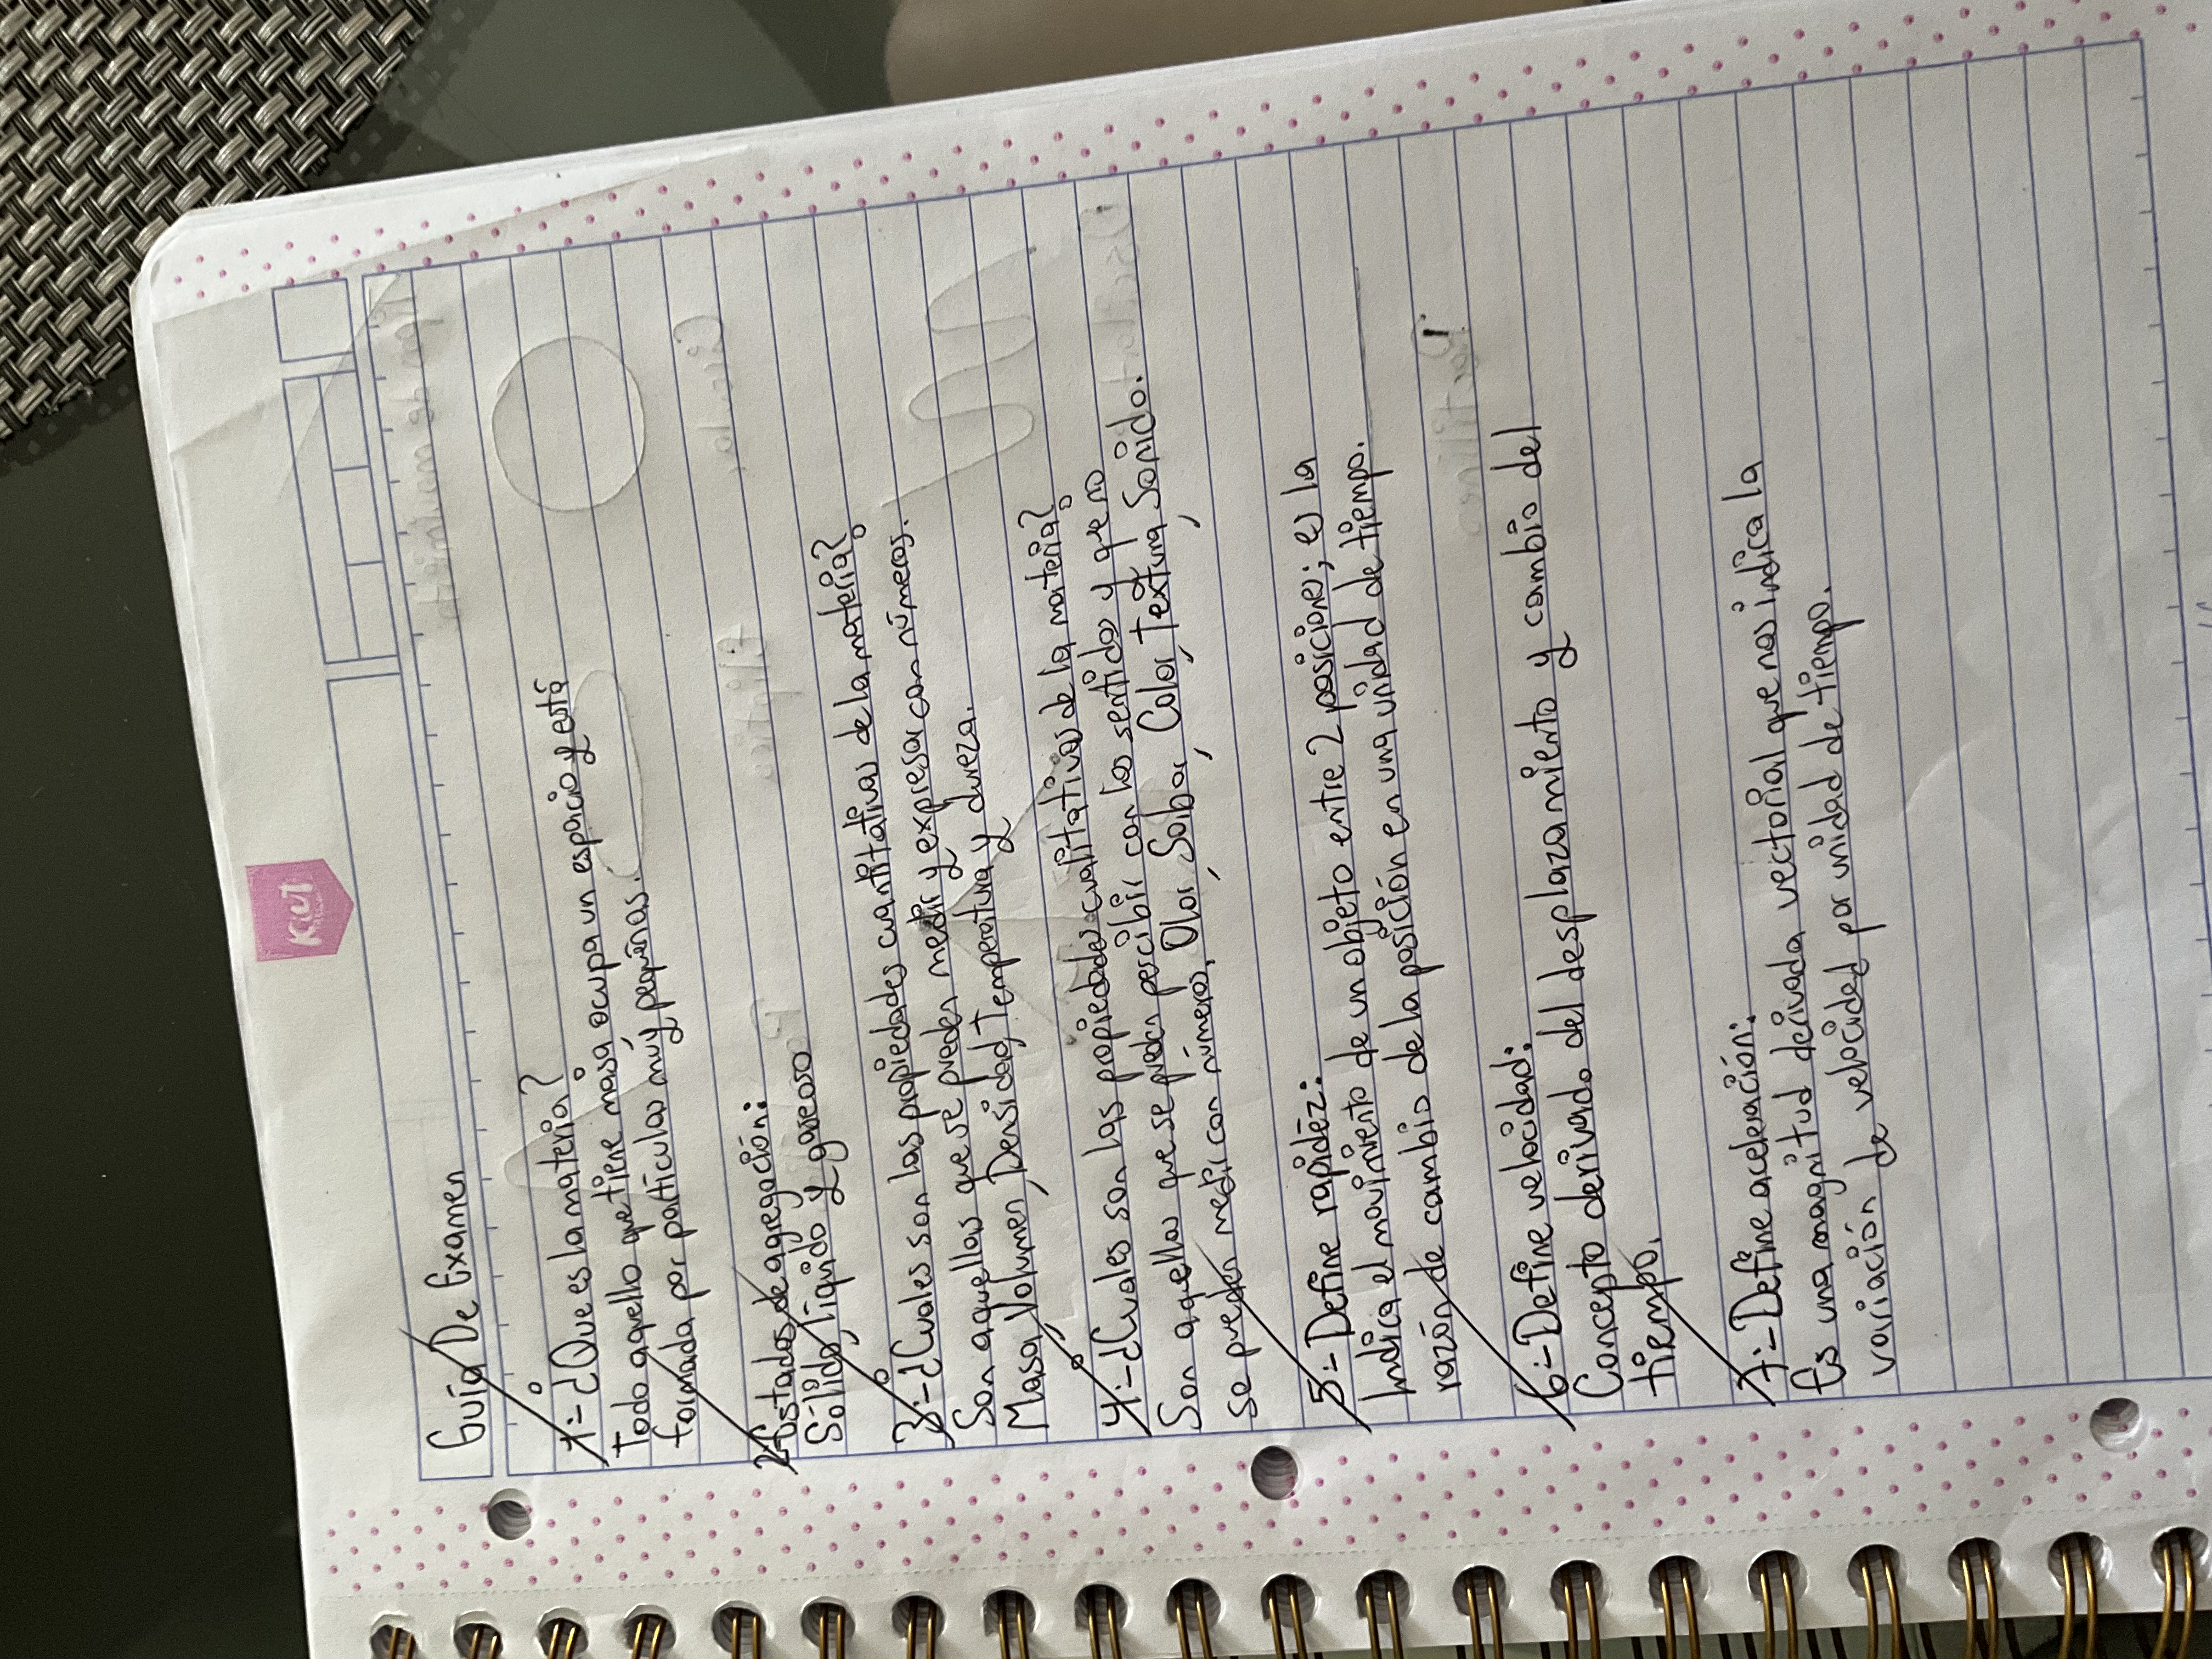 Kiut
Guía De Examen
1.- ¿Que es la materia?
Todo aquello que tiene masa ocupa un espacio y está
formada por partículas múy pequeñas.
2.- Estados de agregación:
Sólido, Líquido y gaseoso
3.- ¿Cuales son las propiedades cuantitativas de la materia?
Son aquellas que se pueden medir y expresar con números.
Masa, Volumen, Densidad, Temperatura y dureza.
4.- ¿Cuales son las propiedades cualitativas de la materia?
Son aquellas que se pueden percibir con los sentidos y que no
se pueden medir con números, Olor, Sabor, Color, Textura, Sonido.
5.- Define rapidéz:
Indica el movimiento de un objeto entre 2 posiciones; es la
razón de cambio de la posición en una unidad de tiempo.
6.- Define velocidad:
Concepto derivado del desplazamiento y cambio del
tiempo.
7.- Define aceleración:
Es una magnitud derivada vectorial que nos indica la
variación de velocidad por unidad de tiempo.